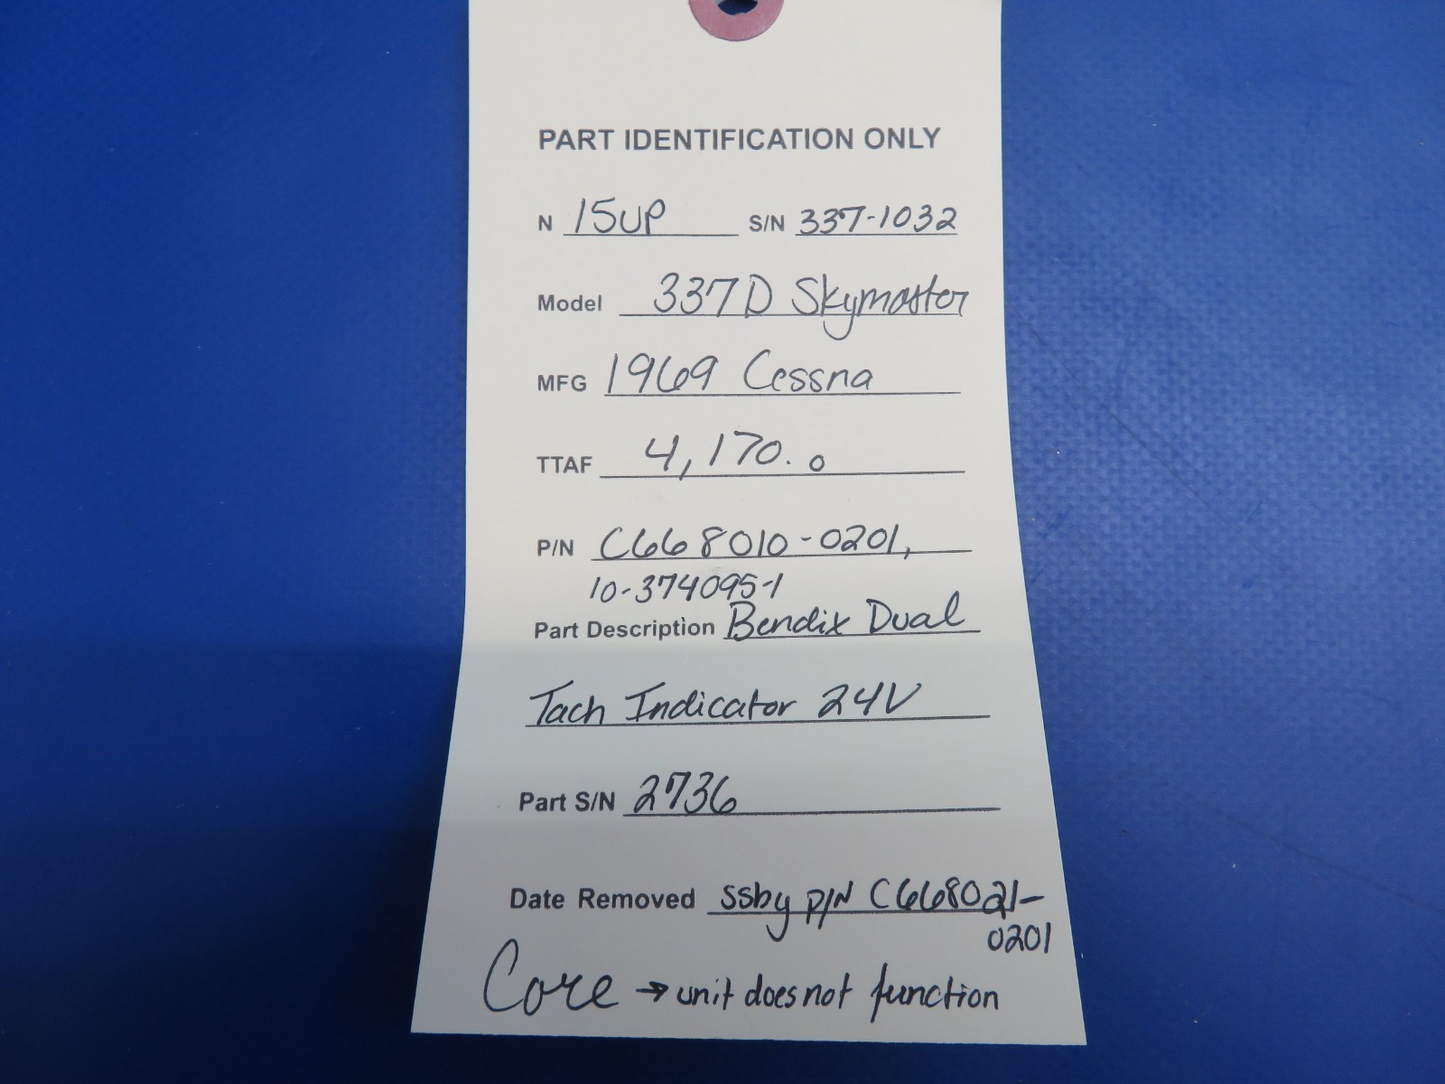 PART IDENTIFICATION ONLY
N 15UP S/N 337-1032
Model 337D Skymaster
MFG 1969 Cessna
TTAF 4,170.0
P/N C668010-0201,
10-374095-1
Part Description Bendix Dual
Tach Indicator 24V
Part S/N 2736
Date Removed ssby P/N C668021-
0201
Core → unit does not function